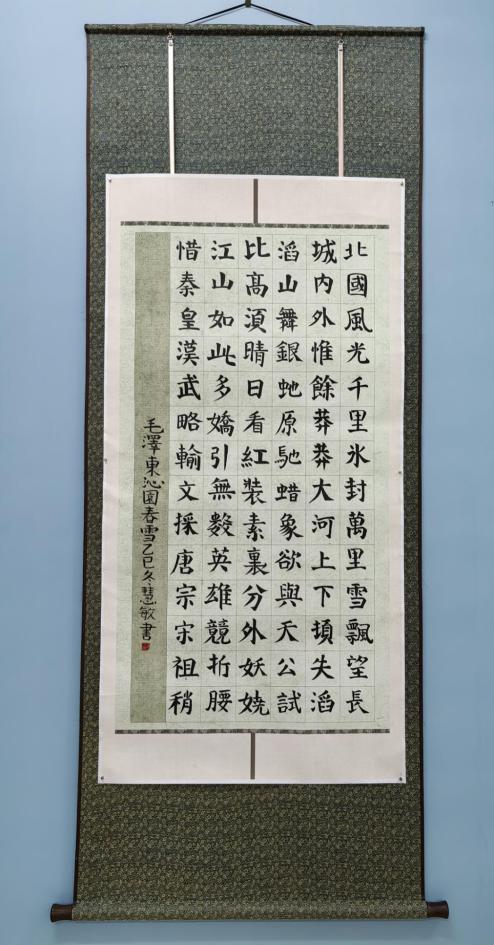 北國風光千里氷封萬里雪飄望長
城内外惟餘莽莽大河上下頓失滔
滔山舞銀虵原馳蜡象欲與天公試
比髙湏晴日看紅裝素裹分外妖嬈
江山如此多嬌引無數英雄競折腰
惜秦皇漢武略輸文採唐宗宋祖稍
毛澤東沁園春雪乙巳冬慧敏書